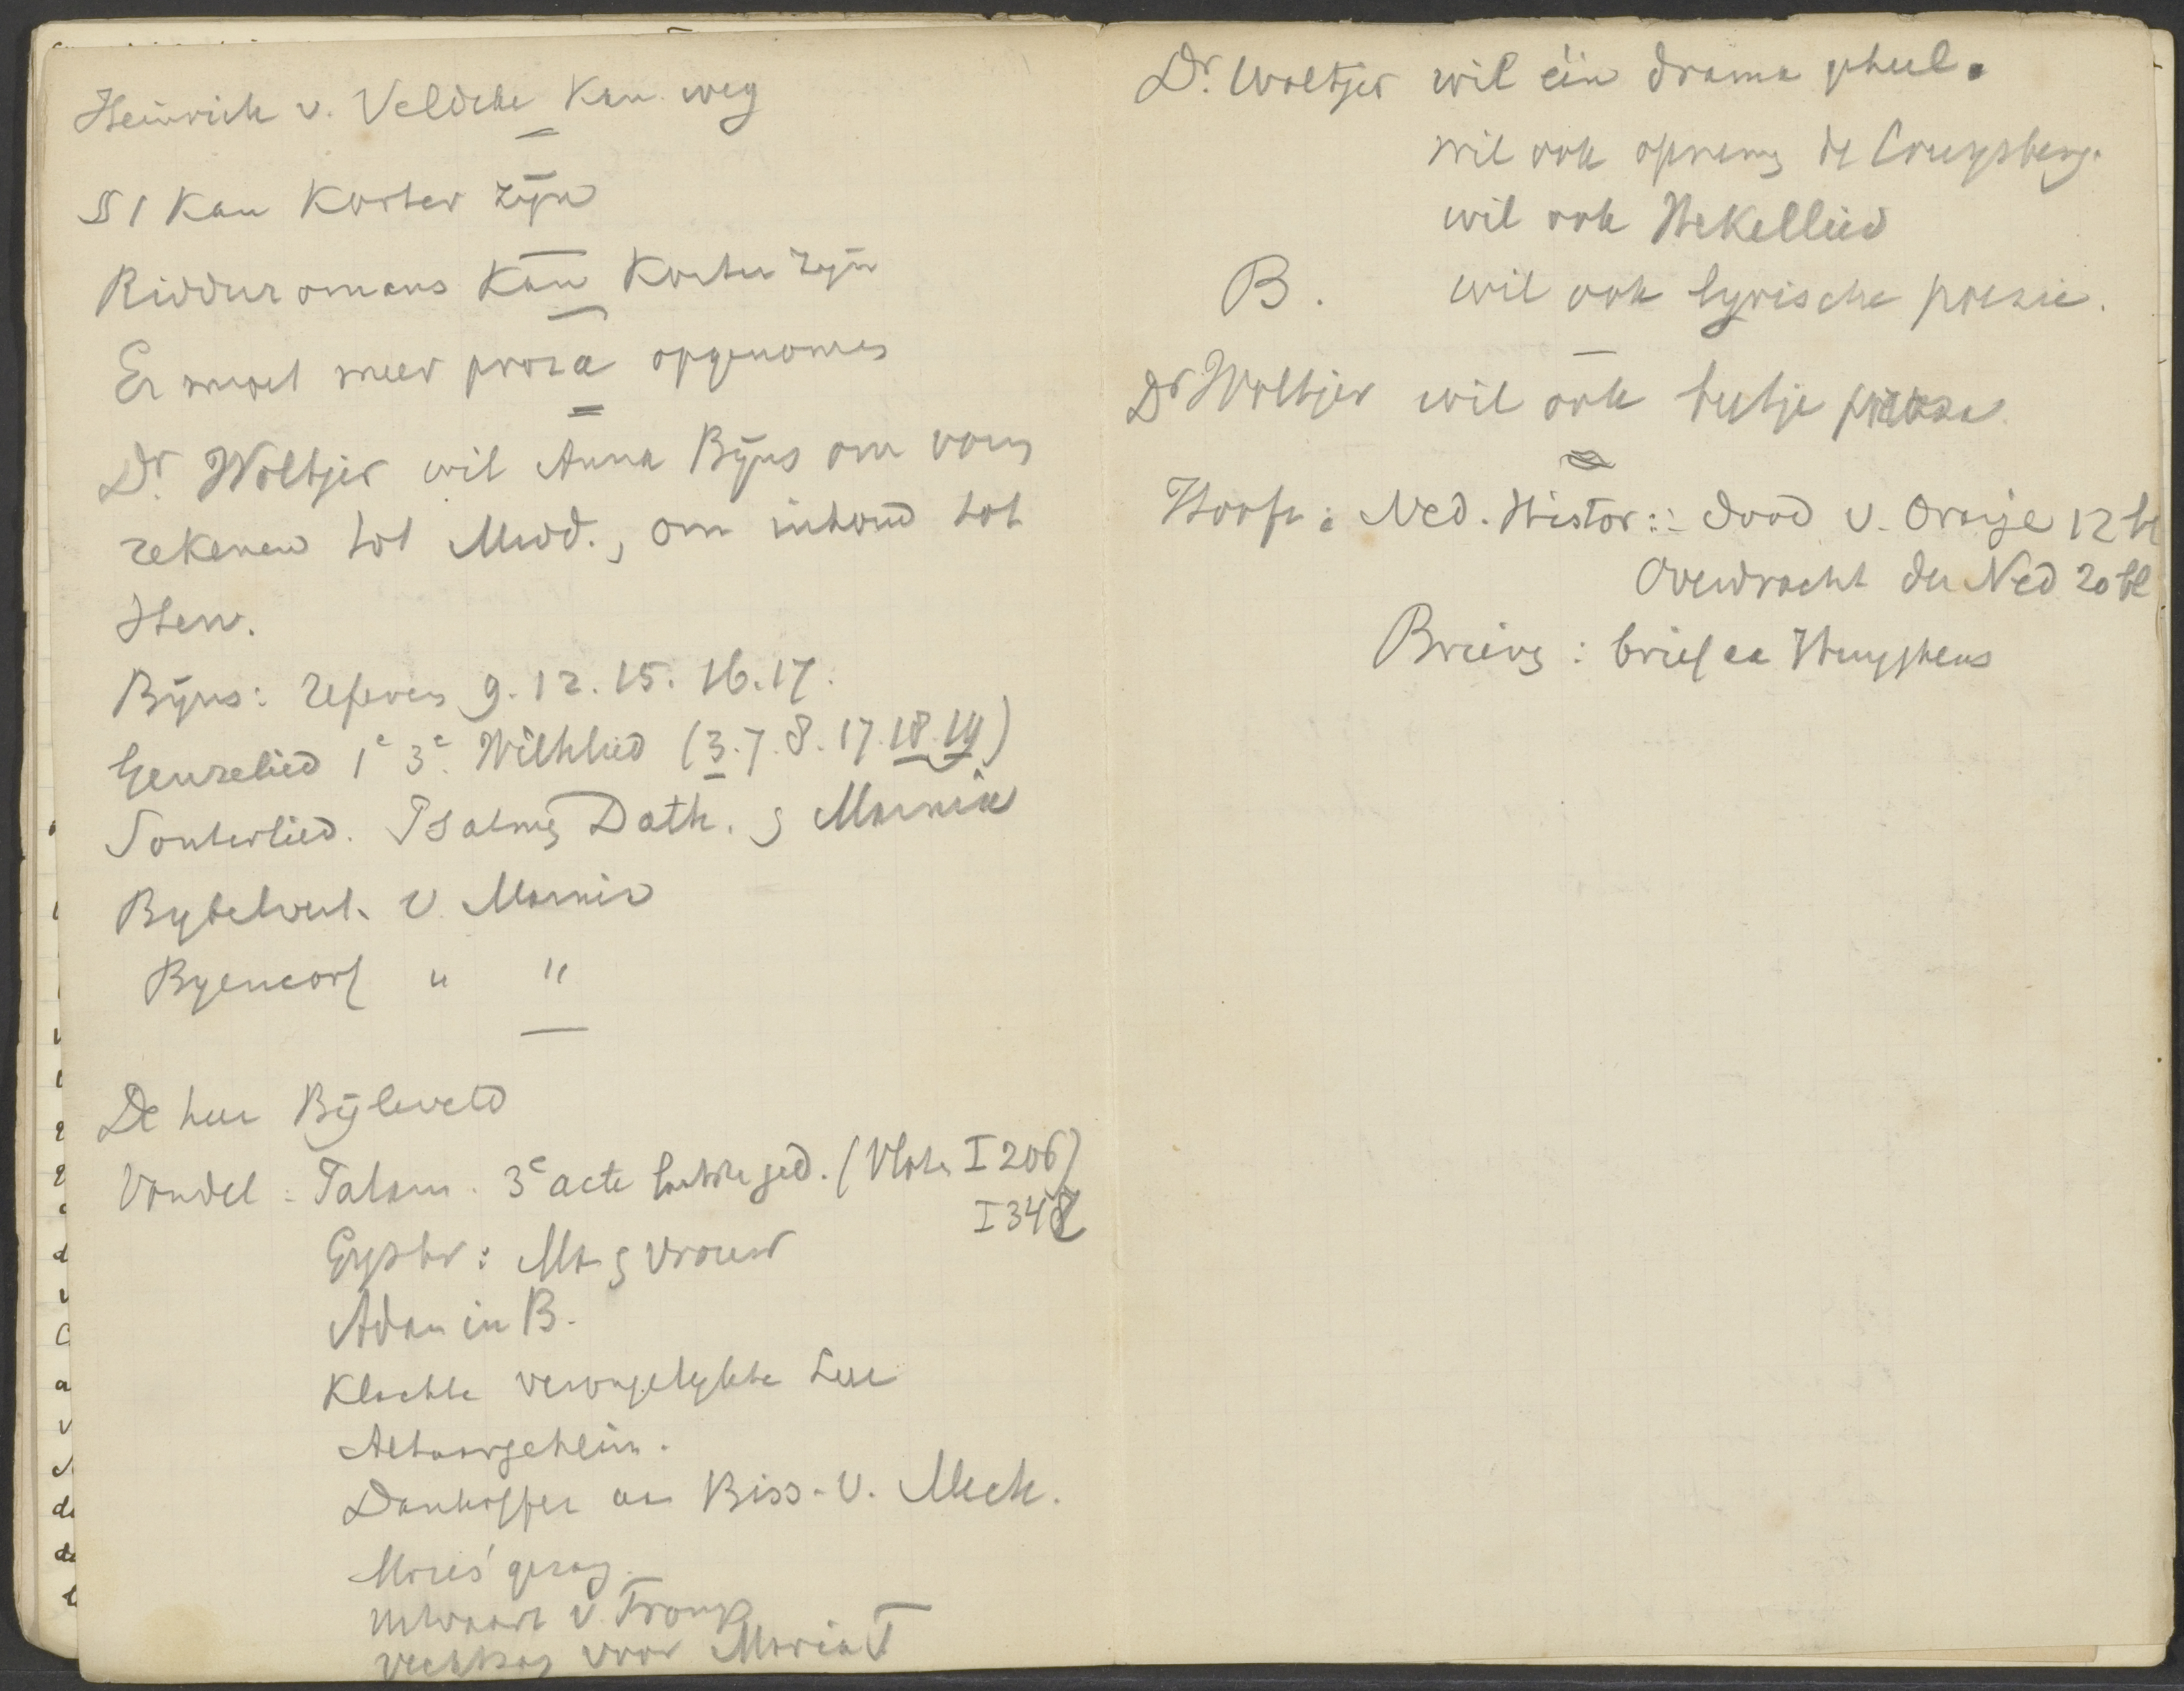 Heinrich v. Veldeke kan weg
§ 1 kan korter zijn
Ridderromans kan korter zijn
Er moet meer proza opgenomen
Dr Woltjer wil Anna Bijns om vorm
rekenen tot Midd., om inhoud tot
Herv.
Bijns: refereinen 9. 12. 15. 16. 17.
Geuzelied 1e 3e. Wilhlied (3. 7. 8. 17. 18. 19)
Souterlied. Psalmen Dath. en Marnix
Bybelvert. v Marnix
Byencorf " "
De heer Bijleveld
Vondel: Palam. 3e acte ged. (Vloten I 206)
I 348
Gysbr: Man en vrouw
Adam in B.
Klachte verongelykte
Altaargeheim.
Dankoffer aan Biss. v. Mech.
Mozes' gezang
uitvaart v. Tromp
voor Maria T
Dr. Woltjer wil één drama geheel.
wil ook opnemen de Cruysberg.
wil ook Hekellied
B. wil ook lyrische poezie.
Dr Woltjer wil ook
Hooft: Ned. Histor: dood v. Oranje 12 bl
Overdracht der Ned 20 bl
Brieven: brief aan Huyghens